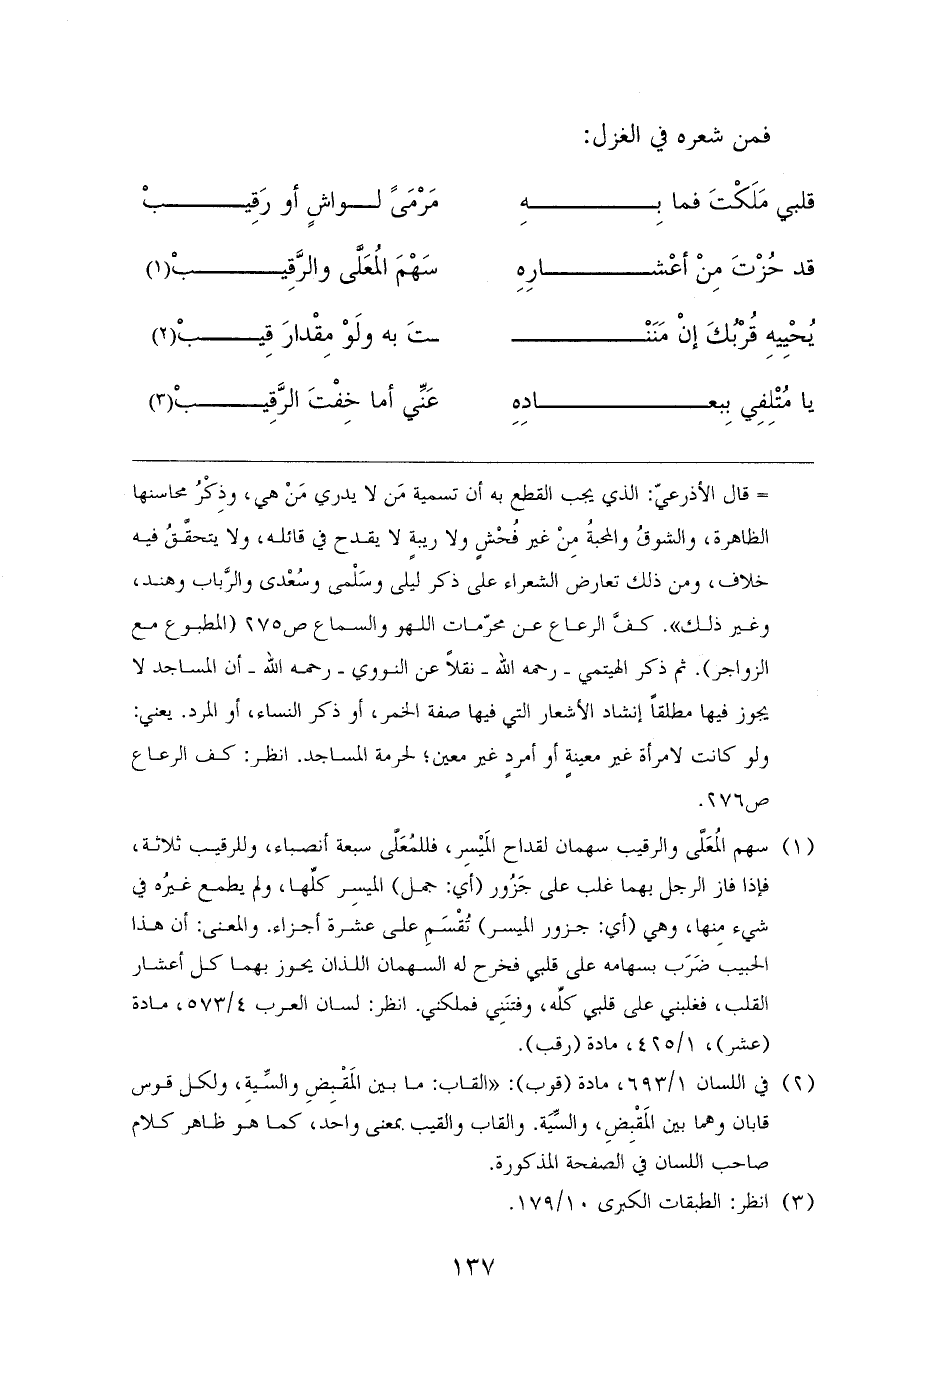 فمن شعره في الغزل:
قلبي مَلَكْتَ فما بِـــــهِ مَرْمَىً لـــواشٍ أو رَقِيـــــبْ
قد حُزْتَ مِنْ أعْشـــــارِهِ سَهْمَ المُعَلَّى والرَّقِيـــــبْ(١)
يُحْيِيهِ قُرْبُكَ إنْ مَنَنْـــــ ـتَ به ولَوْ مِقْدارَ قِيـــــبْ(٢)
يا مُتْلِفِي بِبِعـــــادِهِ عَنِّي أما خِفْتَ الرَّقِيـــــبْ(٣)
= قال الأذرعيّ: الذي يجب القطع به أن تسمية مَن لا يدري مَنْ هي، وذِكْرُ محاسنها
الظاهرة، والشوقُ والمحبةُ مِنْ غير فُحْشٍ ولا ريبةٍ لا يقدح في قائله، ولا يتحقَّقُ فيه
خلاف، ومن ذلك تعارض الشعراء على ذكر ليلى وسَلْمى وسُعْدى والرَّباب وهند،
وغير ذلك». كفَّ الرعاع عن محرّمات اللهو والسماع ص٢٧٥ (المطبوع مع
الزواجر). ثم ذكر الهيتمي - رحمه الله - نقلاً عن النووي - رحمه الله - أن المساجد لا
يجوز فيها مطلقاً إنشاد الأشعار التي فيها صفة الخمر، أو ذكر النساء، أو المرد. يعني:
ولو كانت لامرأة غير معينةٍ أو أمردٍ غير معين؛ لحرمة المساجد. انظر: كف الرعاع
ص٢٧٦.
(١) سهم المُعَلَّى والرقيب سهمان لقداح المَيْسِر، فللمُعَلَّى سبعة أنصباء، وللرقيب ثلاثة،
فإذا فاز الرجل بهما غلب على جَزُور (أي: جمل) الميسر كلّها، ولم يطمع غيرُه في
شيء منها، وهي (أي: جزور الميسر) تُقْسَم على عشرة أجزاء. والمعنى: أن هذا
الحبيب ضَرَب بسهامه على قلبي فخرج له السهمان اللذان يحوز بهما كل أعشار
القلب، فغلبني على قلبي كلّه، وفتنَني فملكني. انظر: لسان العرب ٥٧٣/٤، مادة
(عشر)، ٤٢٥/١، مادة (رقب).
(٢) في اللسان ٦٩٣/١، مادة (قوب): «القاب: ما بين المَقْبِضِ والسِّيةِ، ولكل قوس
قابان وهما بين المَقْبِضِ، والسِّيَة. والقاب والقيب بمعنى واحد، كما هو ظاهر كلام
صاحب اللسان في الصفحة المذكورة.
(٣) انظر: الطبقات الكبرى ١٧٩/١٠.
١٣٧